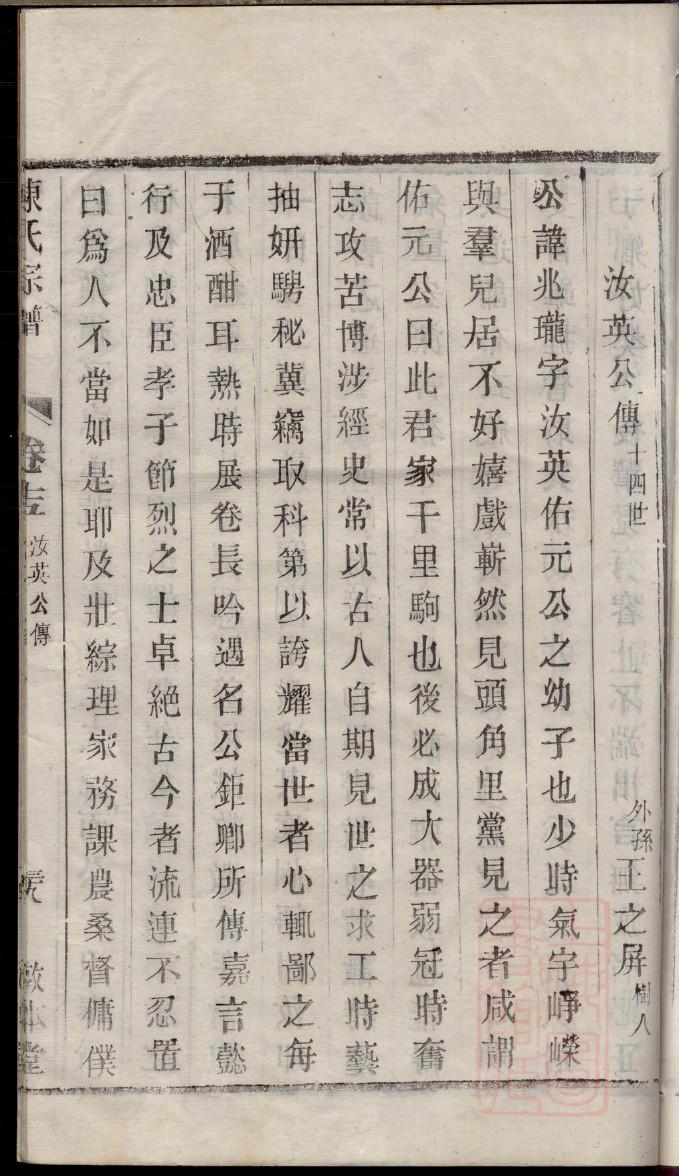 汝英公傳 十四世 外孫王之屏樹人
公諱兆瓏字汝英佑元公之幼子也少時氣宇崢嶸
與羣兒居不好嬉戲嶄然見頭角里黨見之者咸謂
佑元公曰此君家千里駒也後必成大器弱冠時奮
志攻苦博涉經史常以古人自期見世之求工時藝
抽妍騁秘冀竊取科第以誇耀當世者心輒鄙之每
于酒酣耳熱時展卷長吟遇名公鉅卿所傳嘉言懿
行及忠臣孝子節烈之士卓絕古今者流連不忍置
曰爲人不當如是耶及壯綜理家務課農桑督傭僕
陳氏宗譜 卷 汝英公傳 敦本堂